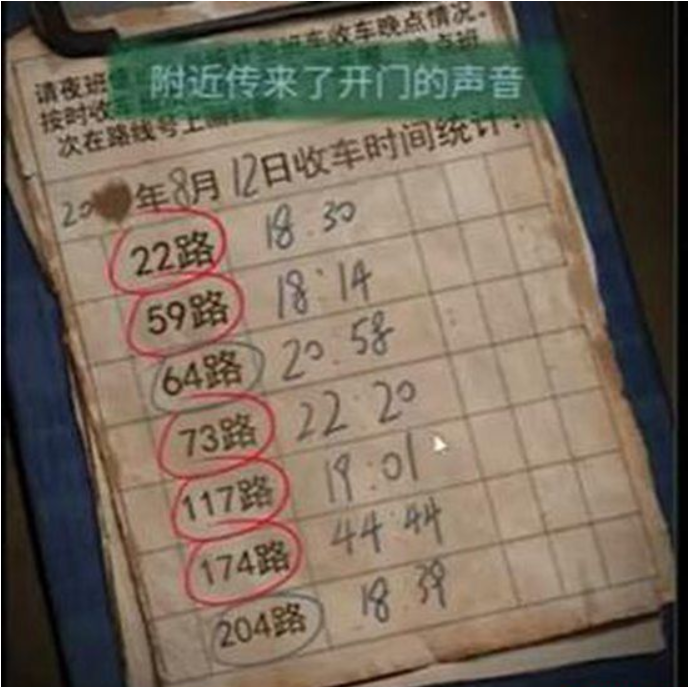 班车收车晚点情况。
请夜班
附近传来了开门的声音
按时收
次在路线号上
20 年8月12日收车时间统计:
22路 18:30
59路 18:14
64路 20:58
73路 22:20
117路 19:01
174路 44:44
204路 18:39